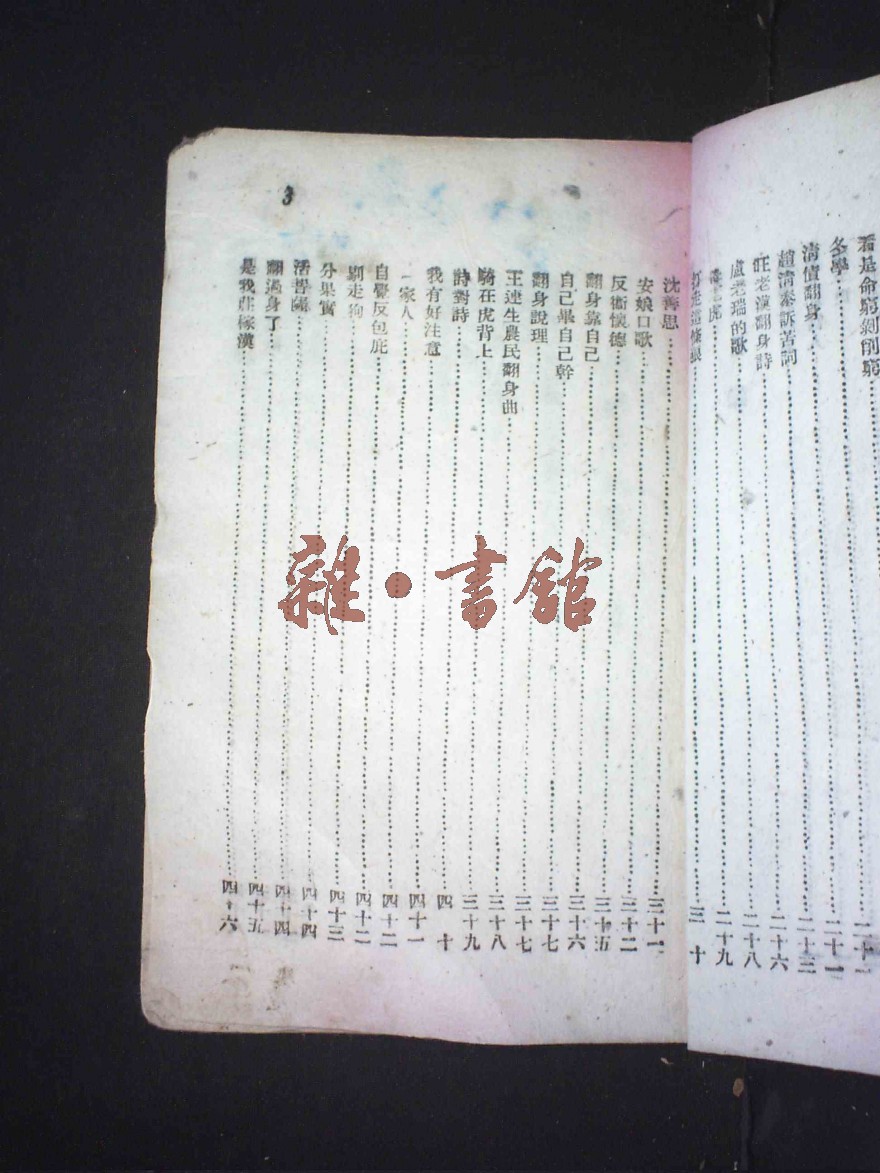 看是命窮剝削窮……二十二
冬學……二十一
清債翻身……二十三
趙清泰訴苦詞……二十六
旺老漢翻身詩……二十八
盧老瑞的歌……二十九
虎
打走這條狼……三十
沈善思……三十一
安娘口歌……三十二
反衛懷德……三十五
翻身靠自己……三十六
自己果自己幹……三十七
翻身說理……三十七
王連生農民翻身曲……三十八
騎在虎背上……三十九
詩對詩……四十
我有好注意……四十一
一家人……四十二
自覺反包庇……四十二
剷走狗……四十三
分果實……四十四
活菩薩……四十四
翻過身了……四十五
是我莊稼漢……四十六
3
雜·書館